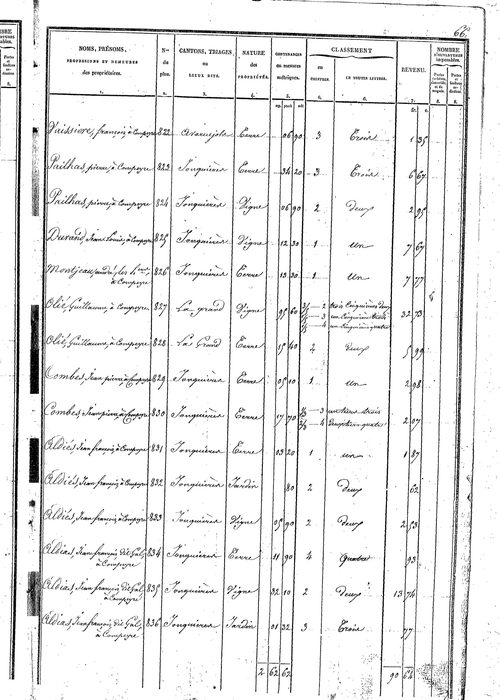 66.
NOMS, PRÉNOMS, PROFESSIONS ET DEMEURES des propriétaires. Nos du plan. CANTONS, TRIAGES, ou LIEUX DITS. NATURE des PROPRIÉTÉS. CONTENANCES en mesures métriques. CLASSEMENT EN CHIFFRES. EN TOUTES LETTRES. REVENU. NOMBRE D'OUVERTURES imposables.
1. 2. 3. 4. 5. 6. 6. 7. 8. 8.
Vaissiere, françois, à Compeyre 822 Terre 06 90 3 Trois 1 35
Pailhas, pierre, à Compeyre 823 Jonquières Terre 34 20 3 Trois 6 67
Pailhas, pierre, à Compeyre 824 Jonquières Vigne 06 90 2 deux 2 95
Durand, Jean Louis, à Compeyre 825 Jonquières Vigne 12 30 1 un 7 67
Montjeaux, andré, les h. à Compeyre 826 Jonquières Terre 13 30 1 un 7 77
Olié, Guillaume, à Compeyre 827 La grand Vigne 95 60 2 3 4 trois cinquièmes deux un cinquième trois un cinquième quatre 32 73
Olié, Guillaume, à Compeyre 828 La Grand Terre 15 40 2 deux 5 99
Combes, Jean pierre, à Compeyre 829 Jonquières Terre 05 10 1 un 2 98
Combes, Jean pierre, à Compeyre 830 Jonquières Terre 17 70 1/3 3 2/3 4 un tiers trois deux tiers quatre 2 07
Aldiés, Jean françois, à Compeyre 831 Jonquières Terre 03 20 1 un 1 87
Aldiés, Jean françois, à Compeyre 832 Jonquières Jardin 80 2 deux 62
Aldiés, Jean françois, à Compeyre 833 Jonquières Vigne 05 90 2 deux 2 53
Aldiés, Jean françois, dit Gal, à Compeyre 834 Jonquières Terre 11 90 4 Quatre 93
Aldiés, Jean françois, dit Gal, à Compeyre 835 Jonquières Vigne 32 10 2 Deux 13 74
Aldiés, Jean françois, dit Gal, à Compeyre 836 Jonquières Jardin 01 32 3 Trois 77
2 62 62 90 64